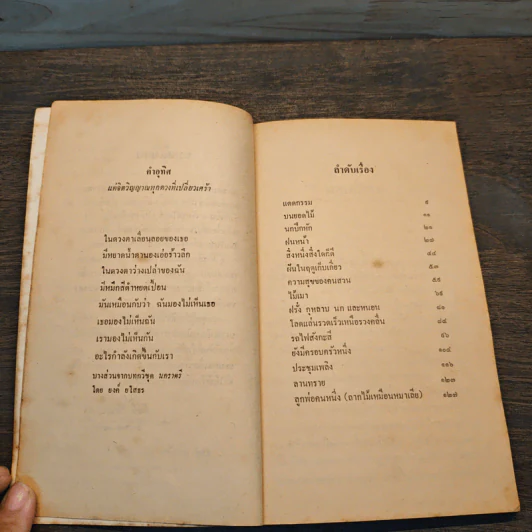 คำอุทิศ
แด่จิตวิญญาณทุกดวงที่เปลี่ยวเศร้า
ในดวงตาเลื่อนลอยของเธอ
มีหยาดน้ำตานองเอ่อร้าวลึก
ในดวงตาว่างเปล่าของฉัน
มีหมึกสีดำหยดเปื้อน
มันเหมือนกับว่า ฉันมองไม่เห็นเธอ
เธอมองไม่เห็นฉัน
เรามองไม่เห็นกัน
อะไรกำลังเกิดขึ้นกับเรา
บางส่วนจากบทกวีชุด นคราตรี
โดย องค์ อวิสธร
ลำดับเรื่อง
แดดกรรม ๕
บนยอดไม้ ๑๑
นกปีกหัก ๒๑
ฝนหน้า ๒๗
สิ่งหนึ่งสิ่งใดก็ดี ๔๔
ผืนในฤดูเก็บเกี่ยว ๕๓
ความสุขของคนสวน ๕๕
ไม้เมา ๖๕
ฝรั่ง กุหลาบ นก และหนอน ๘๑
โลดแล่นรวดเร็วเหนือรวงคลื่น ๘๕
รถไฟสังกะสี ๙๖
ยังมีครอบครัวหนึ่ง ๑๐๔
ประชุมเพลิง ๑๑๖
ลานทราย ๑๒๓
ลูกพ่อคนหนึ่ง (ลากไม้เหมือนหมาเลีย) ๑๒๗